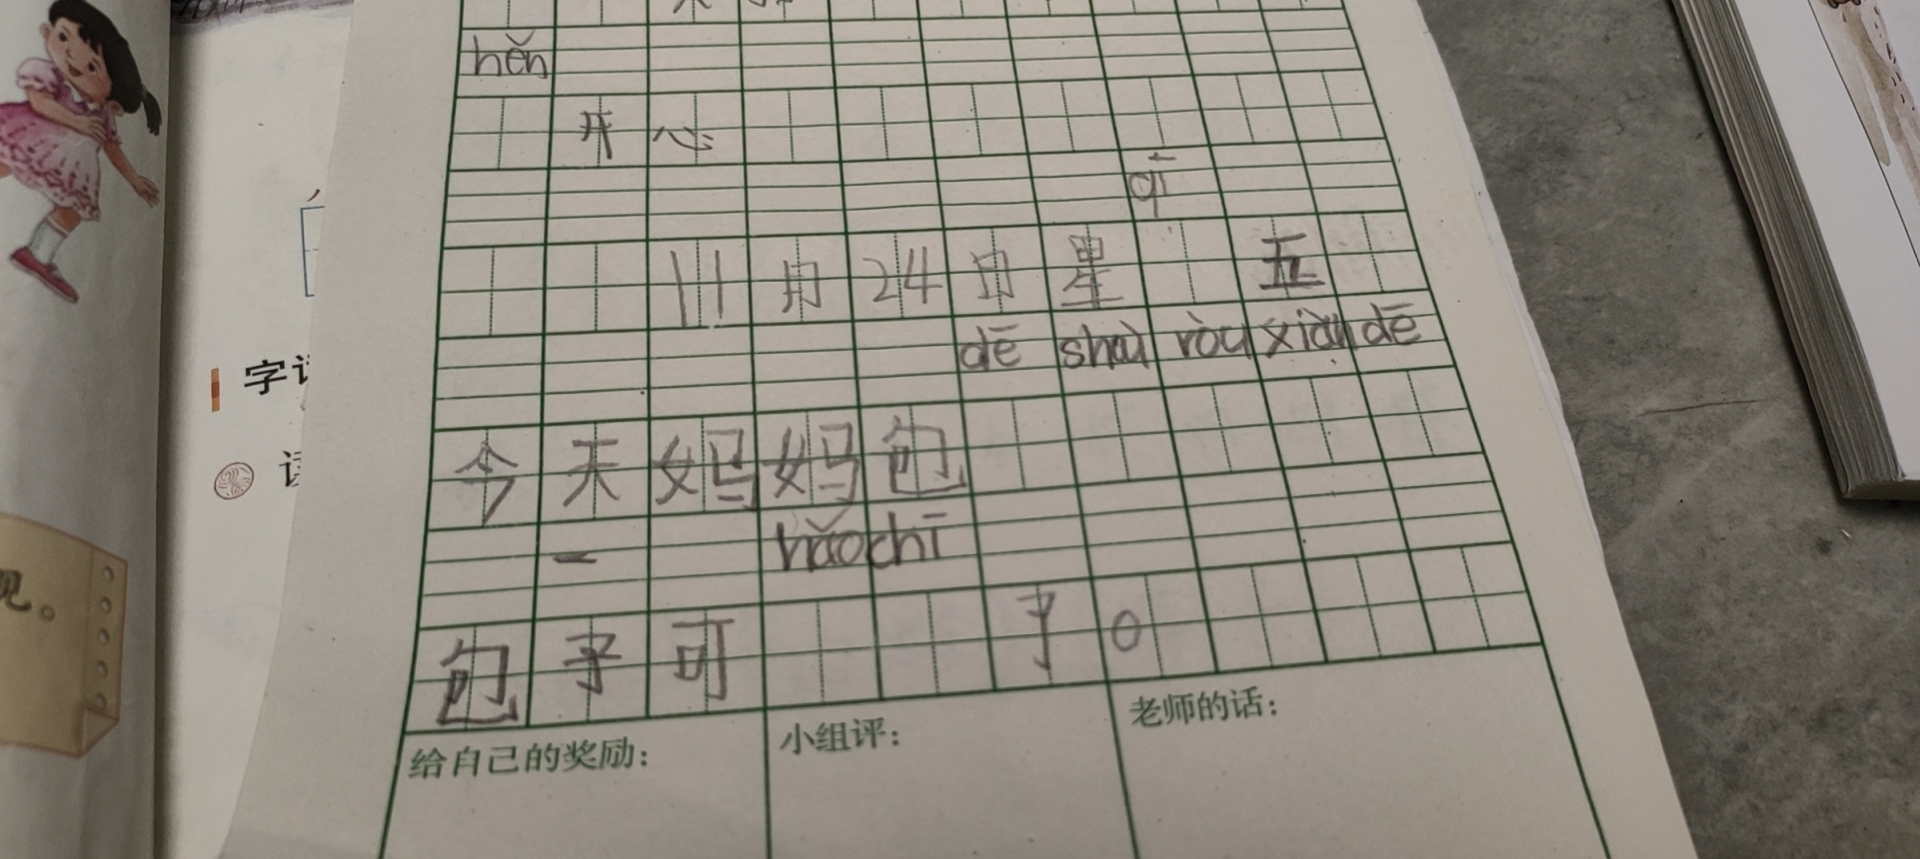 hěn
开心
qī
11月24日星 五
dē shaù ròu xiàn dē
今天妈妈包
hǎo chī
包子可 了。
给自己的奖励：
小组评：
老师的话：
字
观。